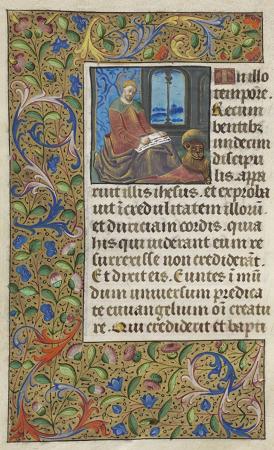 In illo
tempore.
Recum
bentibꝫ
undecim
discipu
lis. appa
ruit illis ihesus. et exproba
uit īcredulitatem illorū
et duriciam cordis. quia
his qui uiderant eum re
surrexisse non crediderāt.
Et dixit eis. Euntes ī mū
dum uniuersum predica
te euuangelium om̄i creatu
re. Qui crediderit et bapti